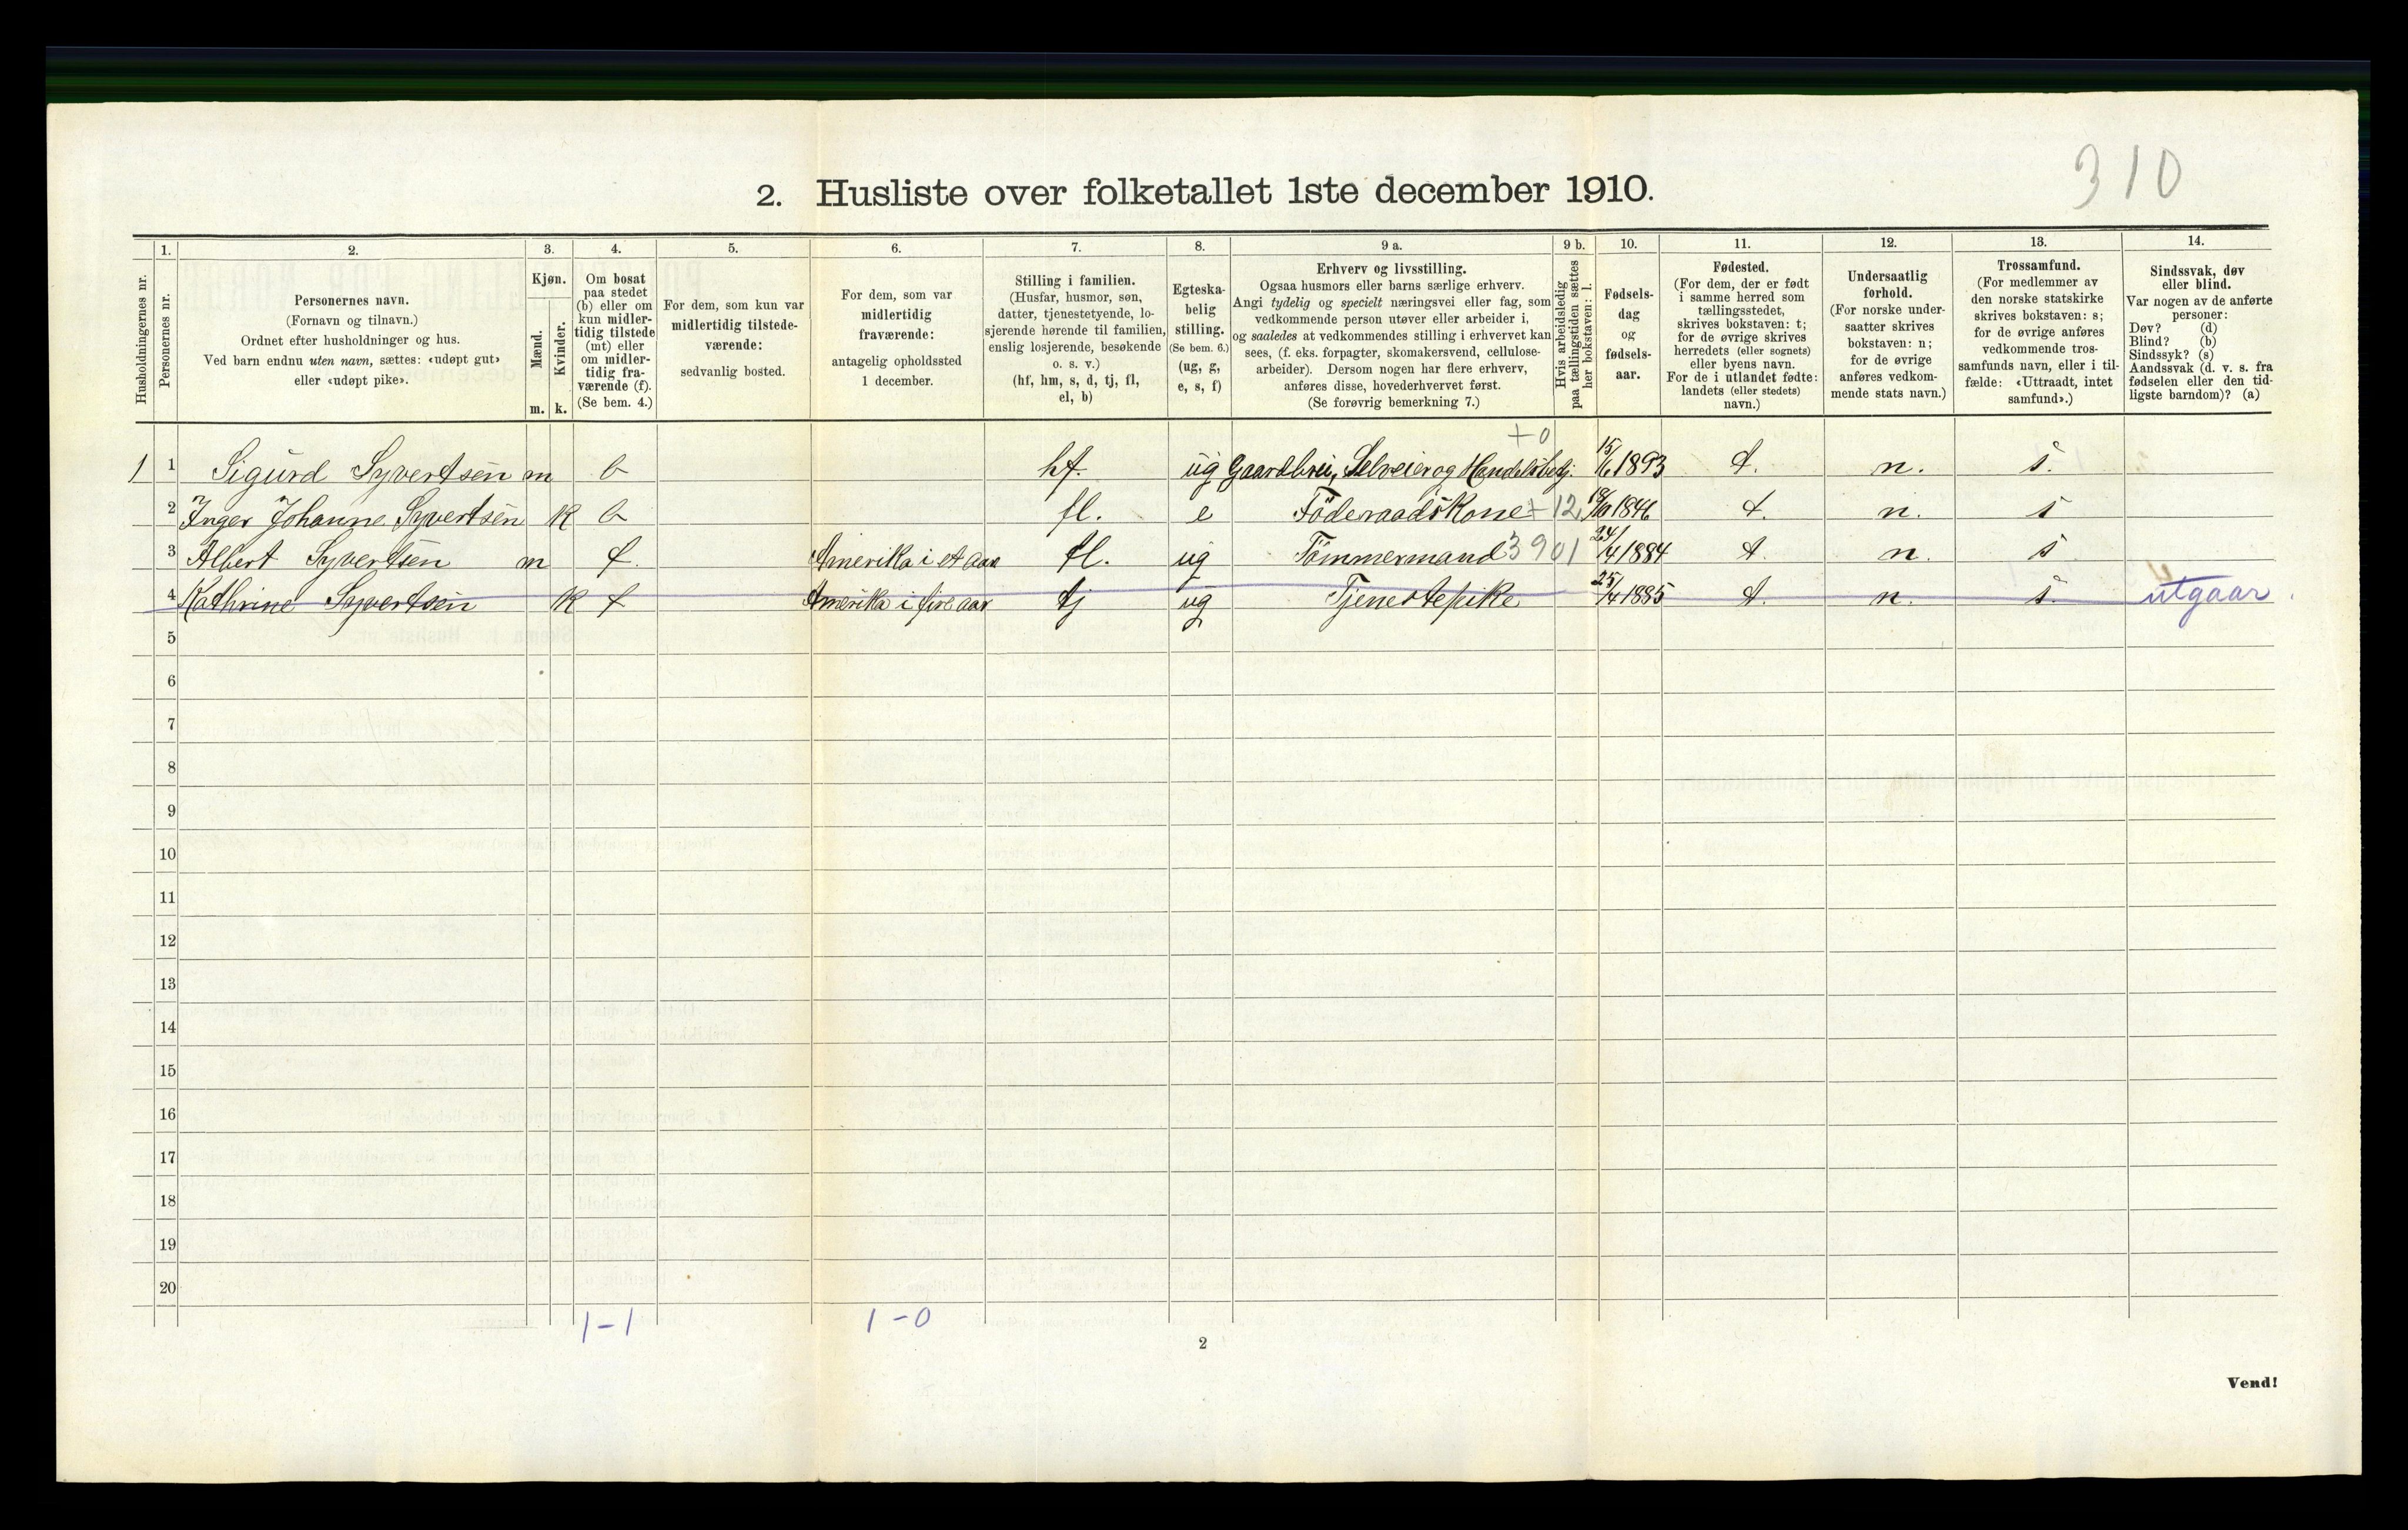 310
2. Husliste over folketallet 1ste december 1910.
Husholdningernes nr.
1.
Personernes nr.
2.
Personernes navn.
(Fornavn og tilnavn.)
Ordnet efter husholdninger og hus.
Ved barn endnu uten navn, sættes: «udøpt gut»
eller «udøpt pike».
3.
Kjøn.
Mænd.
Kvinder.
m. k.
4.
Om bosat
paa stedet
(b) eller om
kun midler-
tidig tilstede
(mt) eller
om midler-
tidig fra-
værende (f).
(Se bem. 4.)
5.
For dem, som kun var
midlertidig tilstede-
værende:
sedvanlig bosted.
6.
For dem, som var
midlertidig
fraværende:
antagelig opholdssted
1 december.
7.
Stilling i familien.
(Husfar, husmor, søn,
datter, tjenestetyende, lo-
sjerende hørende til familien,
enslig losjerende, besøkende
o. s. v.)
(hf, hm, s, d, tj, fl,
el, b)
8.
Egteska-
belig
stilling.
(Se bem. 6.)
(ug, g,
e, s, f)
9 a.
Erhverv og livsstilling.
Ogsaa husmors eller barns særlige erhverv.
Angi tydelig og specielt næringsvei eller fag, som
vedkommende person utøver eller arbeider i,
og saaledes at vedkommendes stilling i erhvervet kan
sees, (f. eks. forpagter, skomakersvend, cellulose-
arbeider). Dersom nogen har flere erhverv,
anføres disse, hovederhvervet først.
(Se forøvrig bemerkning 7.)
9 b.
Hvis arbeidsledig
paa tællingstiden sættes
her bokstaven: l.
10.
Fødsels-
dag
og
fødsels-
aar.
11.
Fødested.
(For dem, der er født
i samme herred som
tællingsstedet,
skrives bokstaven: t;
for de øvrige skrives
herredets (eller sognets)
eller byens navn.
For de i utlandet fødte:
landets (eller stedets)
navn.)
12.
Undersaatlig
forhold.
(For norske under-
saatter skrives
bokstaven: n;
for de øvrige
anføres vedkom-
mende stats navn.)
13.
Trossamfund.
(For medlemmer av
den norske statskirke
skrives bokstaven: s;
for de øvrige anføres
vedkommende tros-
samfunds navn, eller i til-
fælde: «Uttraadt, intet
samfund».)
14.
Sindssvak, døv
eller blind.
Var nogen av de anførte
personer:
Døv? (d)
Blind? (b)
Sindssyk? (s)
Aandssvak (d. v. s. fra
fødselen eller den tid-
ligste barndom)? (a)
+0
1 1 Sigurd Syvertsen m b hf. ug Gaardbr., Selveier og Handelsbetj. 15/6 1893 t. n. s.
2 Inger Johanne Syvertsen k b fl. e Föderaadskone +12 1846 t. n. s
3 Albert Syvertsen m f. Amerika i et aar fl. ug Tömmermand 3901 24/4 1884 t. n. s
4 Kathrine Syvertsen k f Amerika i fire aar tj ug Tjenestepike 25/4 1885 t. n. s. utgaar.
5
6
7
8
9
10
11
12
13
14
15
16
17
18
19
20
1-1 1-0
2
Vend!